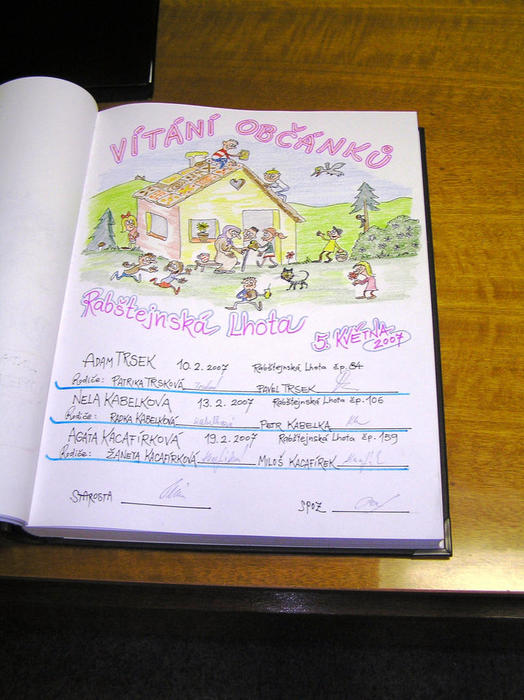 VÍTÁNÍ OBČÁNKŮ
Rabštejnská Lhota
5. KVĚTNA 2007
ADAM TRSEK 10.2.2007 Rabštejnská Lhota čp. 84
Rodiče: PATRIKA TRSKOVÁ PAVEL TRSEK
NELA KABELKOVÁ 13.2.2007 Rabštejnská Lhota čp. 106
Rodiče: RADKA KABELKOVÁ PETR KABELKA
AGÁTA KACAFÍRKOVÁ 19.2.2007 Rabštejnská Lhota čp. 159
Rodiče: ŽANETA KACAFÍRKOVÁ MILOŠ KACAFÍREK
STAROSTA SPOZ